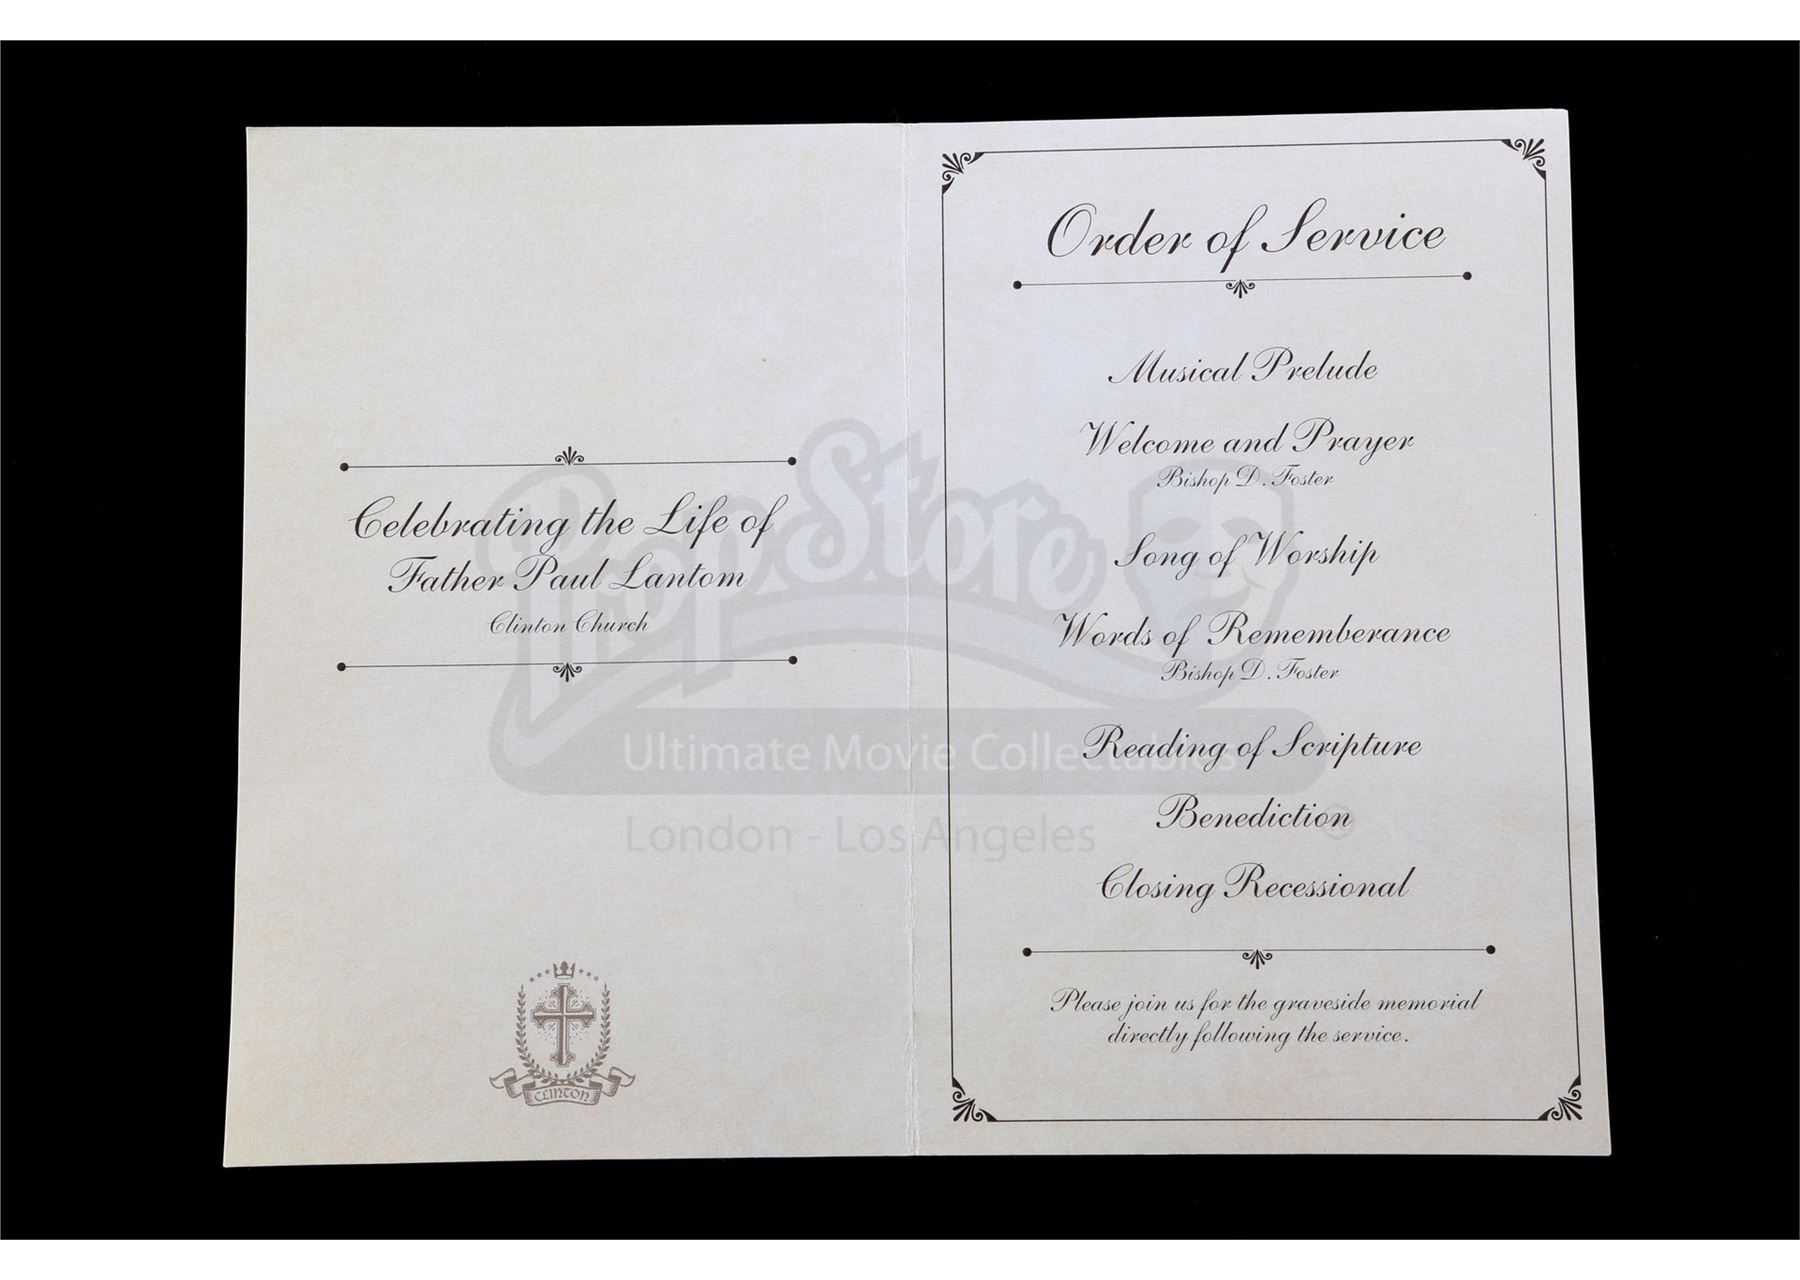 Celebrating the Life of
Father Paul Lantom
Clinton Church
CLINTON
Order of Service
Musical Prelude
Welcome and Prayer
Bishop D. Foster
Song of Worship
Words of Rememberance
Bishop D. Foster
Reading of Scripture
Benediction
Closing Recessional
Please join us for the graveside memorial
directly following the service.
PropStore
Ultimate Movie Collectables
London - Los Angeles